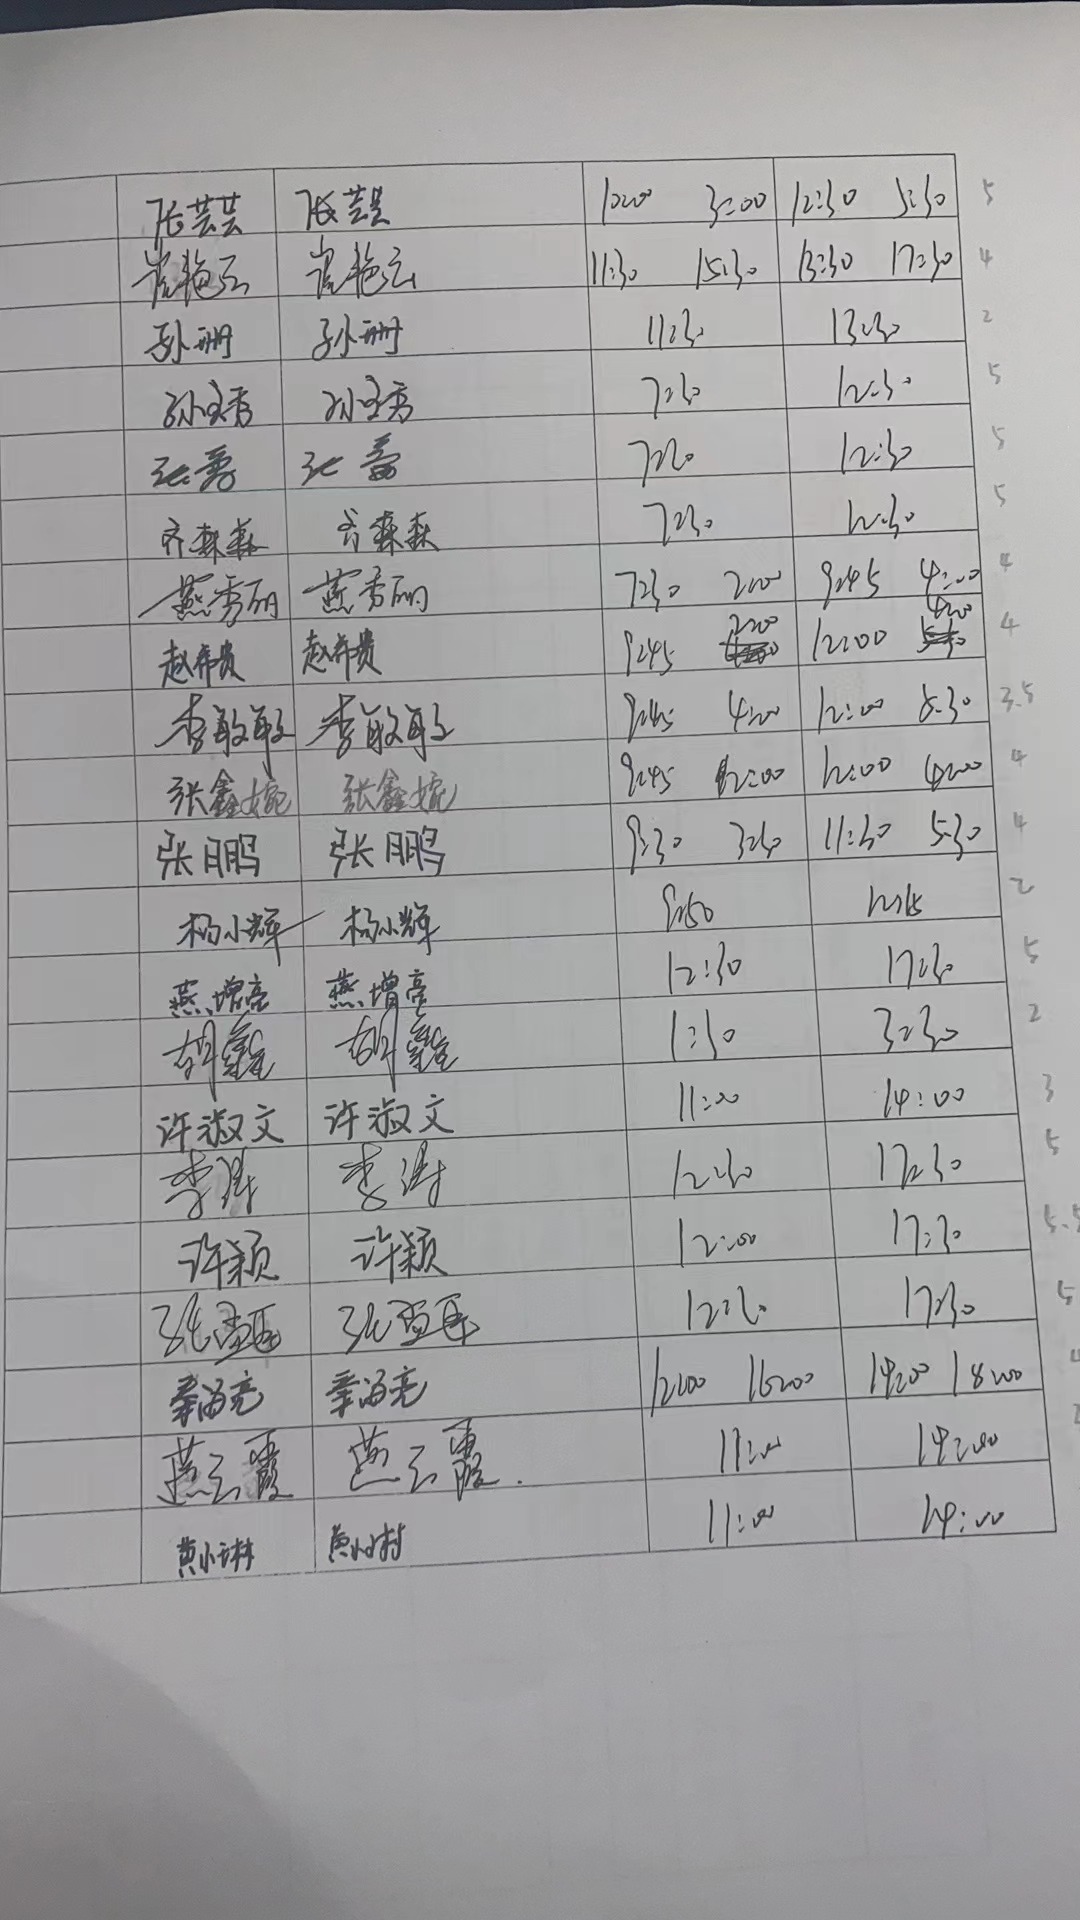 张芸芸 张芸芸 10:00 3:00 12:30 5:30 5
崔艳云 崔艳云 11:30 15:30 13:30 17:30 4
孙珊 孙珊 11:30 13:30 2
孙宝秀 孙宝秀 7:30 12:30 5
张 张 7:30 12:30 5
齐森森 齐森森 7:30 12:30 5
燕秀丽 燕秀丽 7:30 2:00 9:45 4:00 4
赵希贵 赵希贵 9:45 2:00 12:00 4:00 4
李敏敏 李敏敏 9:45 4:00 12:00 5:30 3.5
张鑫婉 张鑫婉 9:45 2:00 12:00 4:00 4
张鹏 张鹏 9:30 3:30 11:30 5:30 4
杨小辉 杨小辉 9:50 12:15 2
燕增亮 燕增亮 12:30 17:30 5
胡鑫 胡鑫 1:30 3:30 2
许淑文 许淑文 11:00 14:00 3
李涛 李涛 12:30 17:30 5
许颖 许颖 12:00 17:30 5.5
12:30 17:30 5
秦海亮 秦海亮 12:00 16:00 14:00 18:00
燕云霞 燕云霞. 11:00 14:00
黄小琳 黄小琳 11:00 14:00